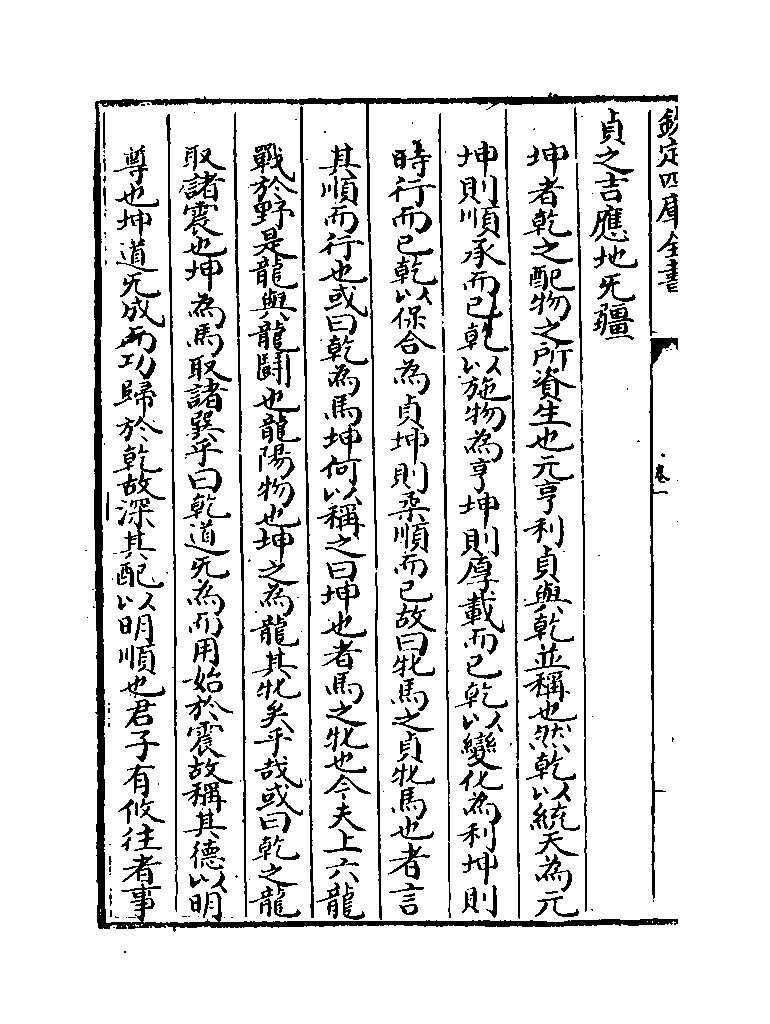 欽定四庫全書
卷一
貞之吉應地旡疆
坤者乾之配物之所資生也元亨利貞與乾並稱也然乾以統天為元
坤則順承而已乾以施物為亨坤則厚載而已乾以變化為利坤則
時行而已乾以保合為貞坤則柔順而已故曰牝馬之貞牝馬也者言
其順而行也或曰乾為馬坤何以稱之曰坤也者馬之牝也今夫上六龍
戰於野是龍與龍鬭也龍陽物也坤之為龍其牝矣乎哉或曰乾之龍
取諸震也坤為馬取諸巽乎曰乾道旡為而用始於震故稱其德以明
尊也坤道旡成而功歸於乾故深其配以明順也君子有攸往者事